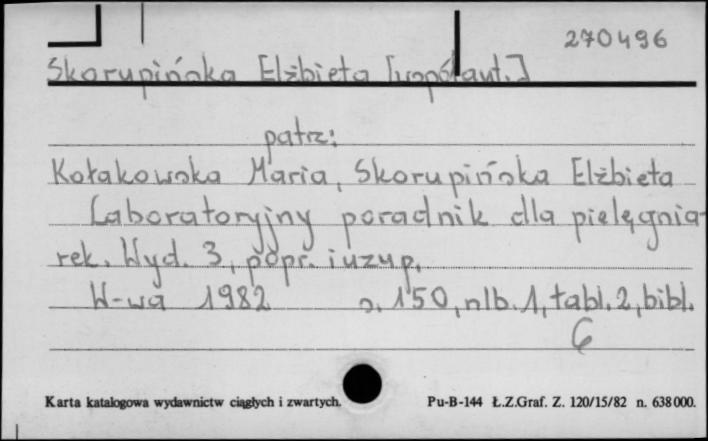 270496
Skorupińska Elżbieta [współaut.]
patrz:
Kołakowska Maria, Skorupińska Elżbieta
Laboratoryjny poradnik dla pielęgnia-
rek. Wyd. 3, popr. i uzup.
W-wa 1982 s. 150, nlb. 1, tabl. 2, bibl.
6
Karta katalogowa wydawnictw ciągłych i zwartych. Pu-B-144 Ł.Z.Graf. Z. 120/15/82 n. 638000.